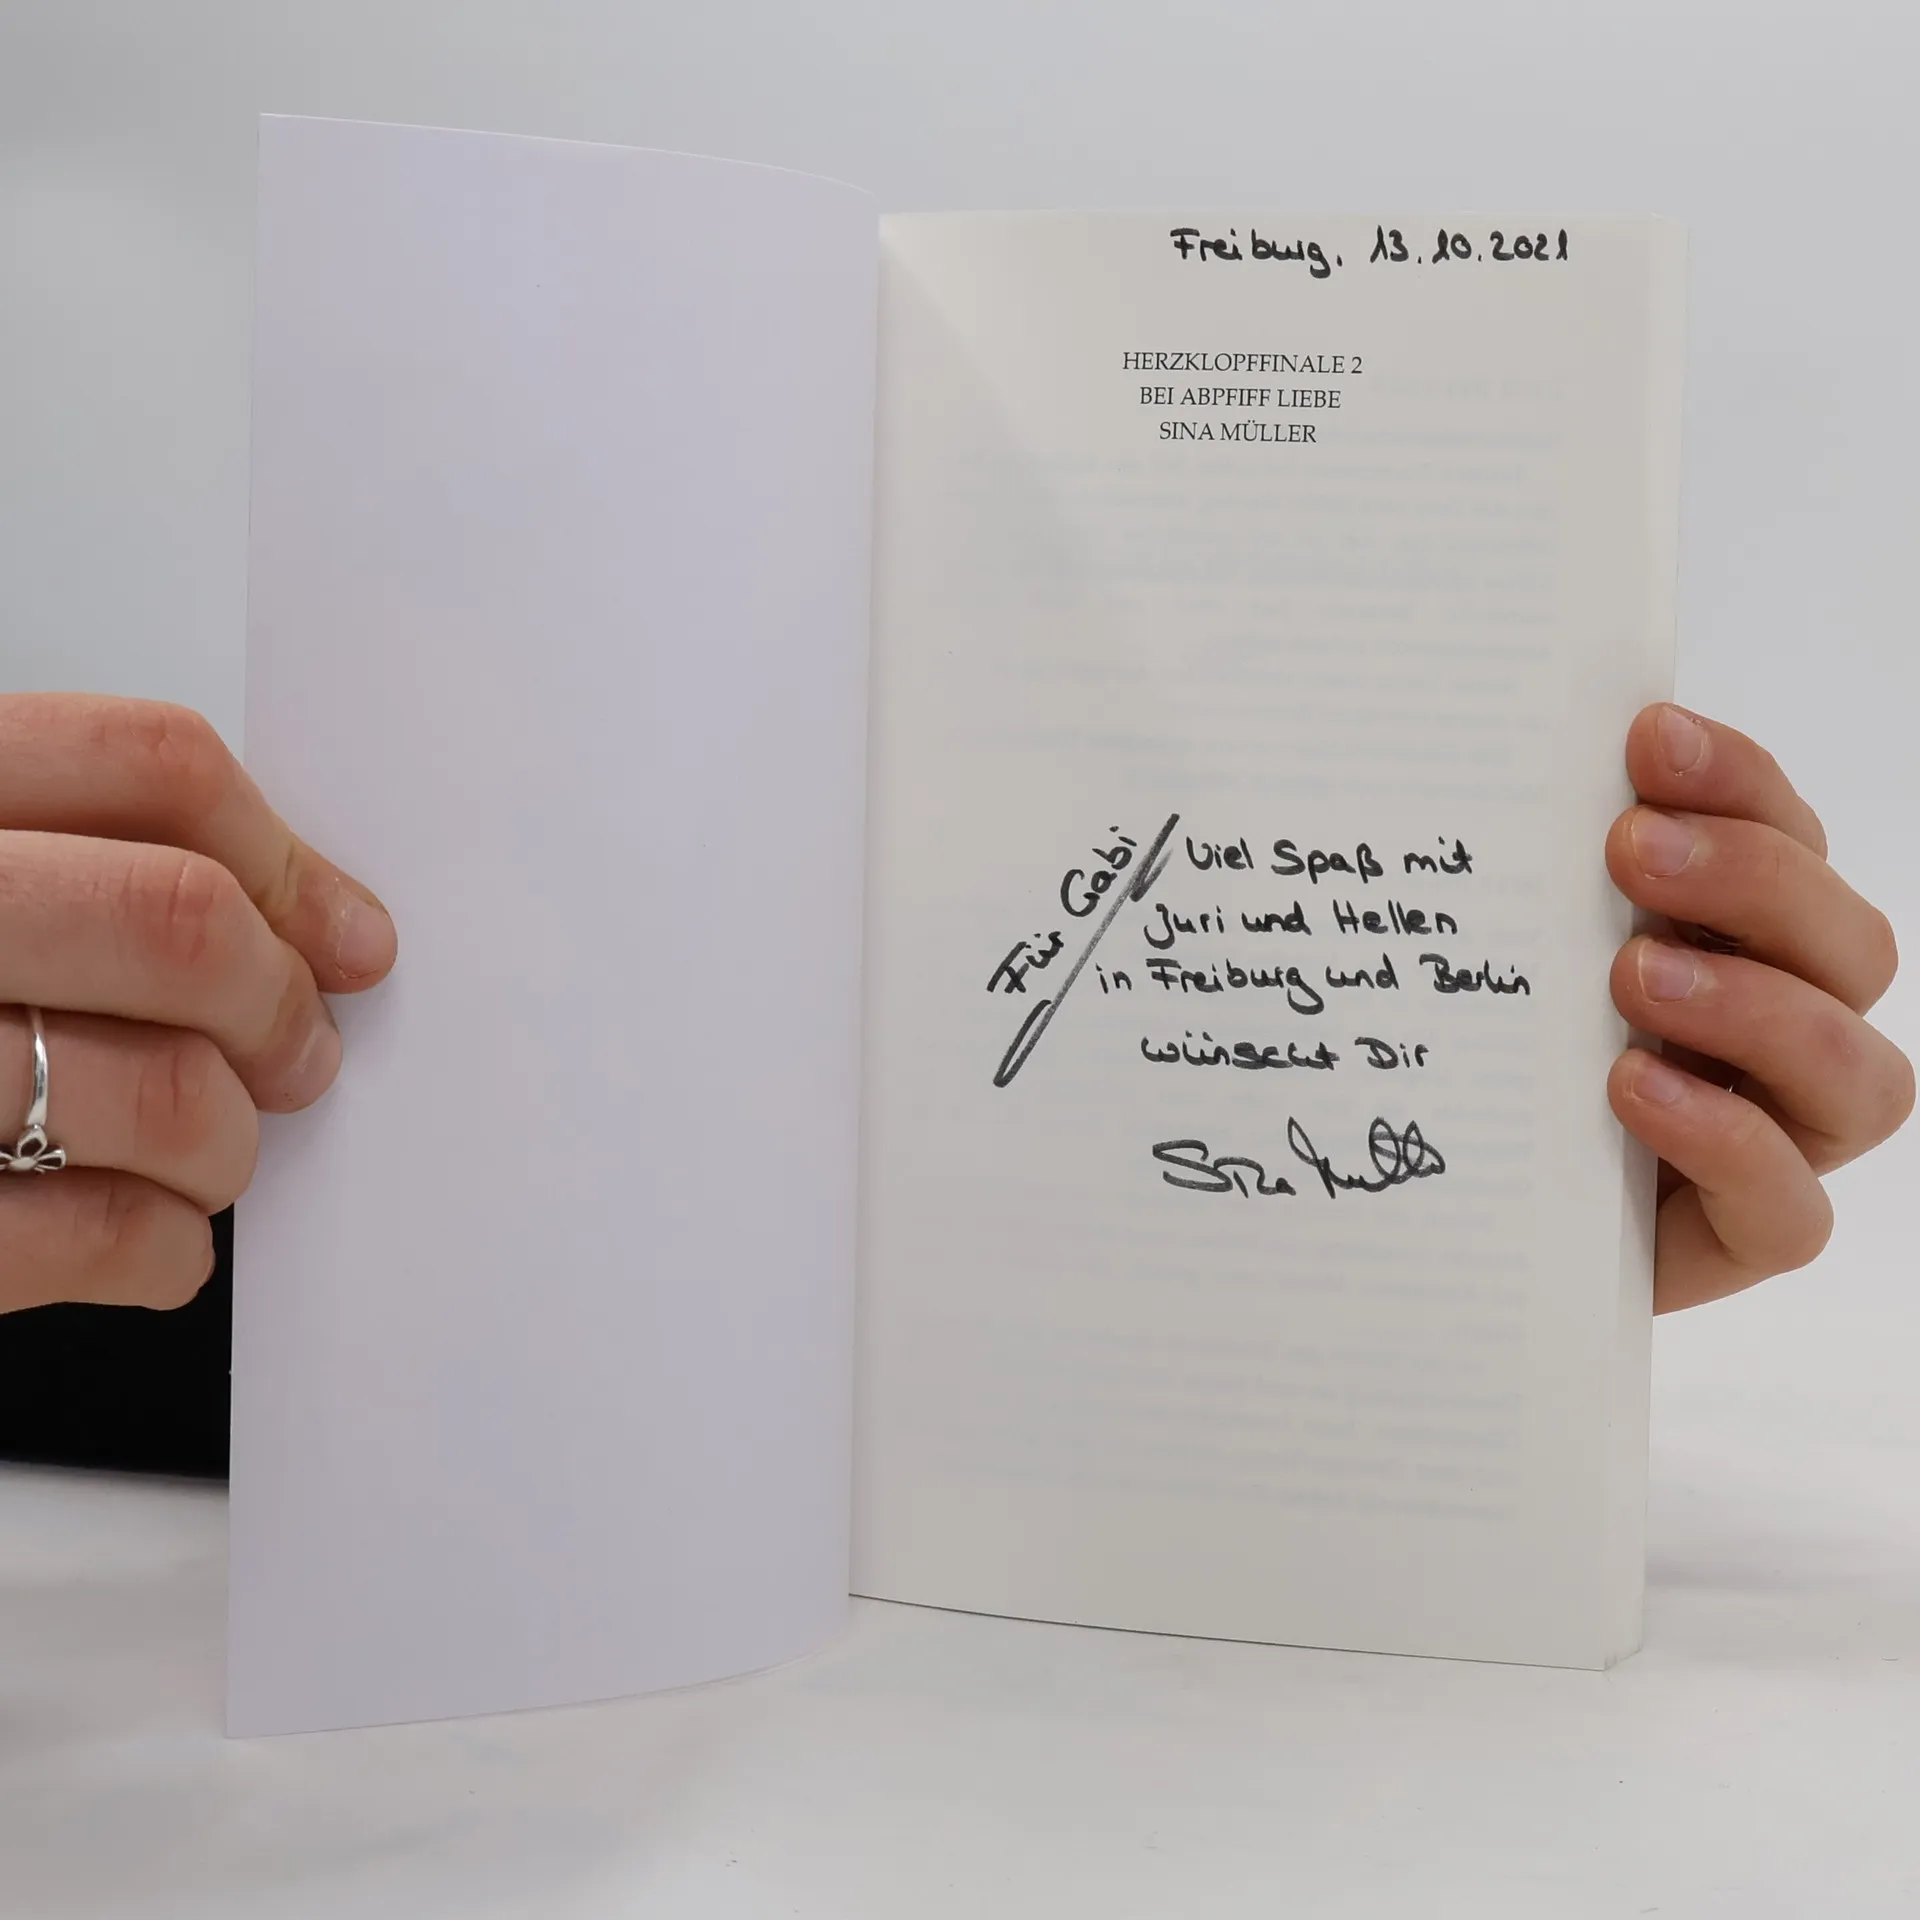 Freiburg, 13.10.2021
HERZKLOPFFINALE 2
BEI ABPFIFF LIEBE
SINA MÜLLER
Für Gabi
Viel Spaß mit
Juri und Hellen
in Freiburg und Berlin
wünscht Dir
Sina Müller